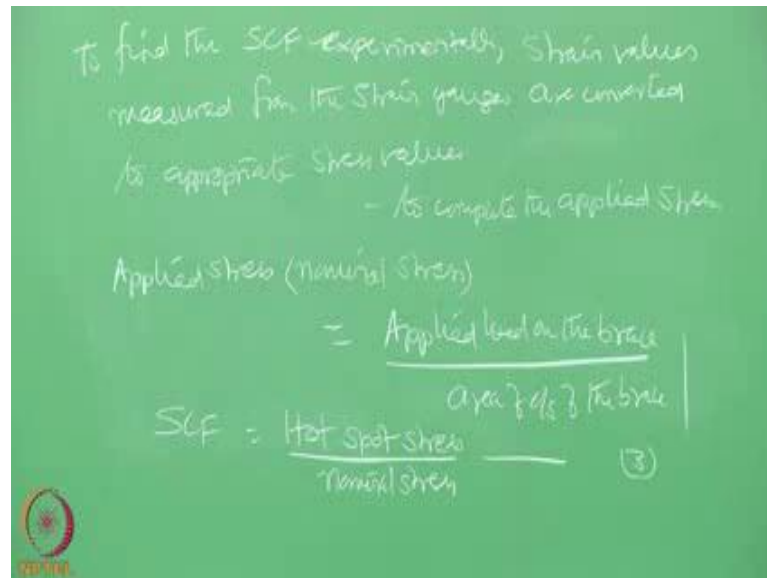 To find the SCF experimentally, Strain values
measured from the Strain gauges are converted
to appropriate stress values
- to compute the applied stress
Applied stress (nominal stress)
= Applied load on the brace
area of c/s of the brace
SCF = Hot spot stress
nominal stress
(3)
NPTEL